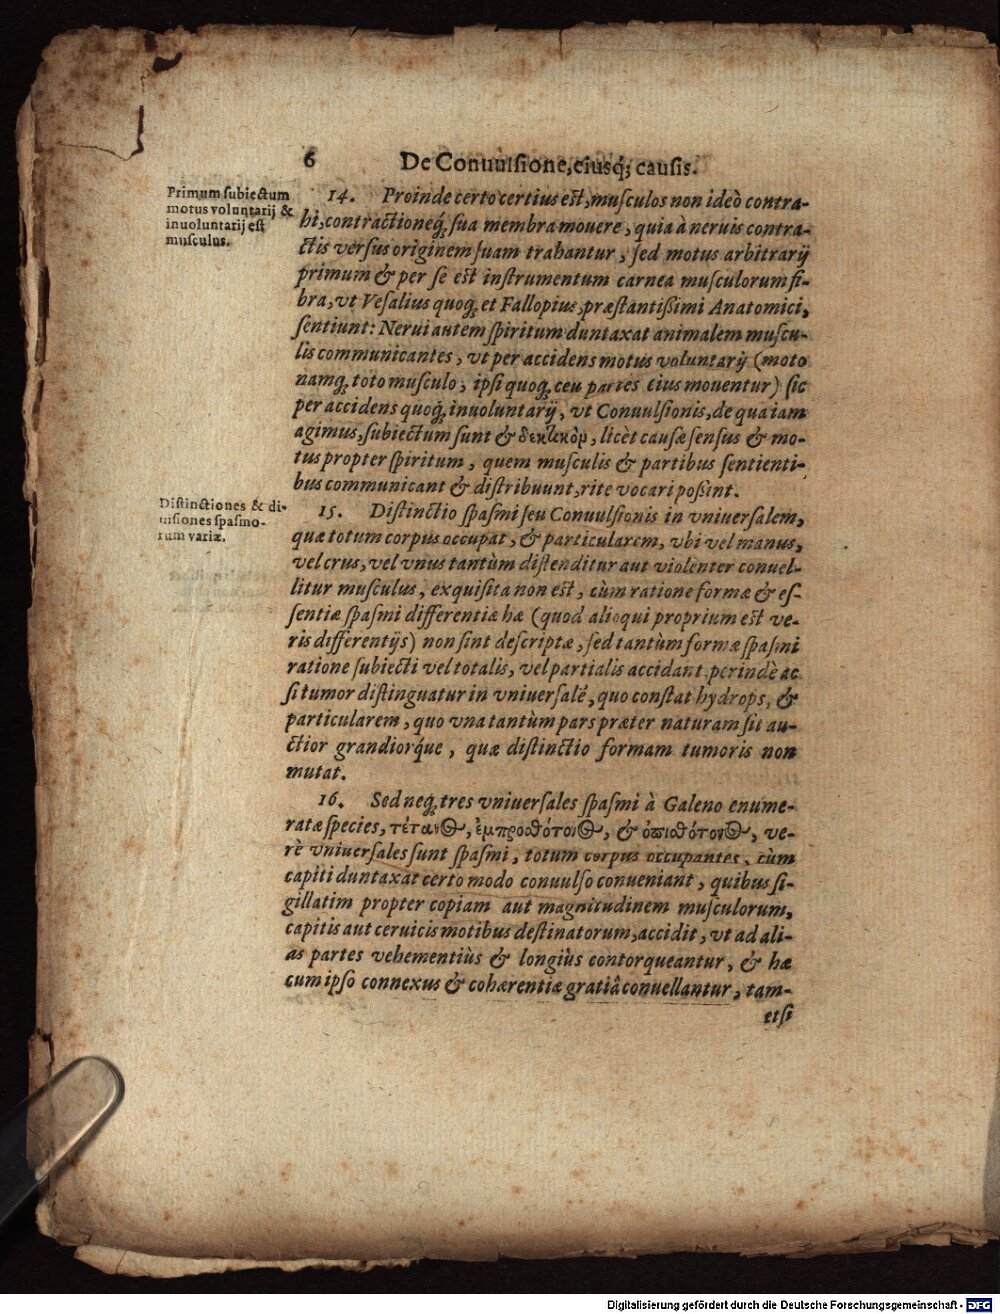 6 De Conuulsione, eiusq́; causis.
Primum subiectum
motus voluntarij &
inuoluntarij est
musculus.
14. Proinde certo certius est, musculos non ideò contra-
hi, contractioneq́; sua membra mouere, quia à neruis contra-
ctis versus originem suam trahantur, sed motus arbitrarij
primum & per se est instrumentum carnea musculorum fi-
bra, vt Vesalius quoq; et Fallopius, præstantißimi Anatomici,
sentiunt: Nerui autem spiritum duntaxat animalem muscu-
lis communicantes, vt per accidens motus voluntarij (moto
namq; toto musculo, ipsi quoq; ceu partes eius mouentur) sic
per accidens quoq; inuoluntarij, vt Conuulsionis, de qua iam
agimus, subiectum sunt & δεκτικὸμ, licèt causæ sensus & mo-
tus propter spiritum, quem musculis & partibus sentienti-
bus communicant & distribuunt, rite vocari poßint.
Distinctiones & di-
uisiones spasmo-
rum variæ.
15. Distinctio spasmi seu Conuulsionis in vniuersalem,
quæ totum corpus occupat, & particularem, vbi vel manus,
vel crus, vel vnus tantùm distenditur aut violenter conuel-
litur musculus, exquisita non est, cùm ratione formæ & es-
sentiæ spasmi differentiæ hæ (quod alioqui proprium est ve-
ris differentijs) non sint descriptæ, sed tantùm formæ spasmi
ratione subiecti vel totalis, vel partialis accidant, perindè ac
si tumor distinguatur in vniuersalē, quo constat hydrops, &
particularem, quo vna tantùm pars præter naturam fit au-
ctior grandiorq́ue, quæ distinctio formam tumoris non
mutat.
16. Sed neq; tres vniuersales spasmi à Galeno enume-
ratæ species, τέτανος, ἐμπροσθότονος, & ὀπισθότονος, ve-
rè vniuersales sunt spasmi, totum corpus occupantes, cùm
capiti duntaxat certo modo conuulso conueniant, quibus si-
gillatim propter copiam aut magnitudinem musculorum,
capitis aut ceruicis motibus destinatorum, accidit, vt ad ali-
as partes vehementiùs & longiùs contorqueantur, & hæ
cum ipso connexus & cohærentiæ gratiâ conuellantur, tam-
etsi
Digitalisierung gefördert durch die Deutsche Forschungsgemeinschaft - DFG